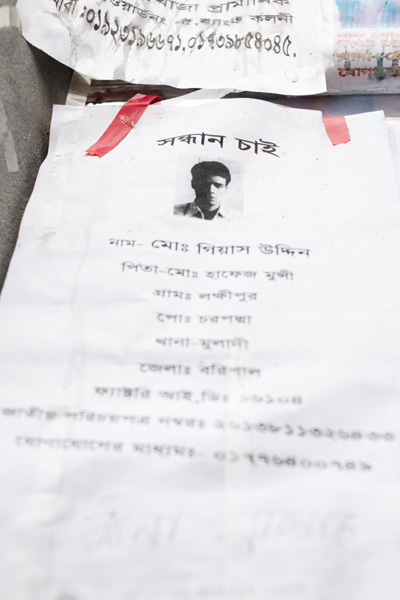 :০১৯২৩১৯৬৬৭১.০১৭৩৯৮৫৪০৪৫.
সন্ধান চাই
নাম- মোঃ গিয়াস উদ্দিন
পিতা-মোঃ হাফেজ মুন্সী
গ্রামঃ লক্ষীপুর
পোঃ চরপদ্মা
থানা-মুলাদী
জেলাঃ বরিশাল
ফ্যাক্টরি আই,ডিঃ ১৬১০৪
জাতীয় পরিচয়পত্র নম্বরঃ ২৬১৩৮১১৩২৬৪৩৩
যোগাযোগের মাধ্যমঃ- ০১৭৭৬৪০০৭৪৯